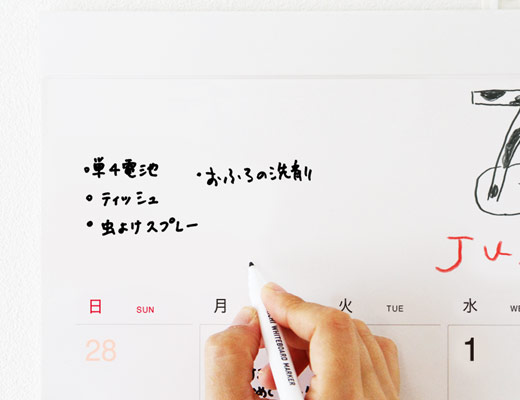 ・単4電池
・ティッシュ
・虫よけスプレー
・おふろの洗剤
JU
日 SUN
月
火 TUE
水 WE
28
1
WHITEBOARD MARKER